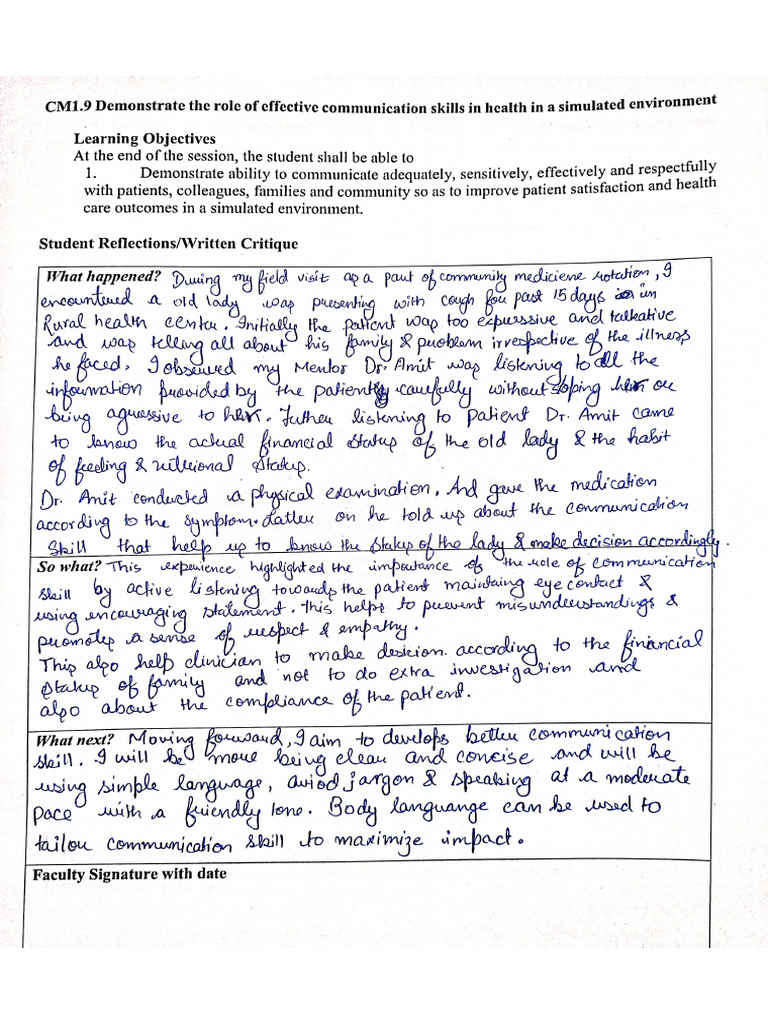 CM1.9 Demonstrate the role of effective communication skills in health in a simulated environment
Learning Objectives
At the end of the session, the student shall be able to
1. Demonstrate ability to communicate adequately, sensitively, effectively and respectfully
with patients, colleagues, families and community so as to improve patient satisfaction and health
care outcomes in a simulated environment.
Student Reflections/Written Critique
What happened? During my field visit as a part of community mediciene rotation, I
encountered a old lady was presenting with cough for past 15 days in
Rural health center. Initially the patient was too expressive and talkative
and was telling all about his family & problem irrespective of the illness
he faced. I observed my Mentor Dr. Amit was listening to all the
information provided by the patient carefully without stoping her or
being agressive to her. Futher listening to patient Dr. Amit came
to know the actual financial status of the old lady & the habit
of feeding & nutitional status.
Dr. Amit conducted a physical examination. And gave the medication
according to the symptom. Latter on he told us about the communication
skill that help us to know the status of the lady & make decision accordingly.
So what? This experience highlighted the importance of the role of communication
skill by active listening towards the patient maintaing eye contact &
using encouraging statement. This helps to prevent misunderstandings &
promotes a sense of respect & empathy.
This also help clinician to make desicion according to the financial
status of family and not to do extra investigation and
also about the compliance of the patient.
What next? Moving forward, I aim to develops better communication
skill. I will be more being clear and concise and will be
using simple language, aviod jargon & speaking at a moderate
pace with a friendly tone. Body languange can be used to
tailor communication skill to maximize impact.
Faculty Signature with date